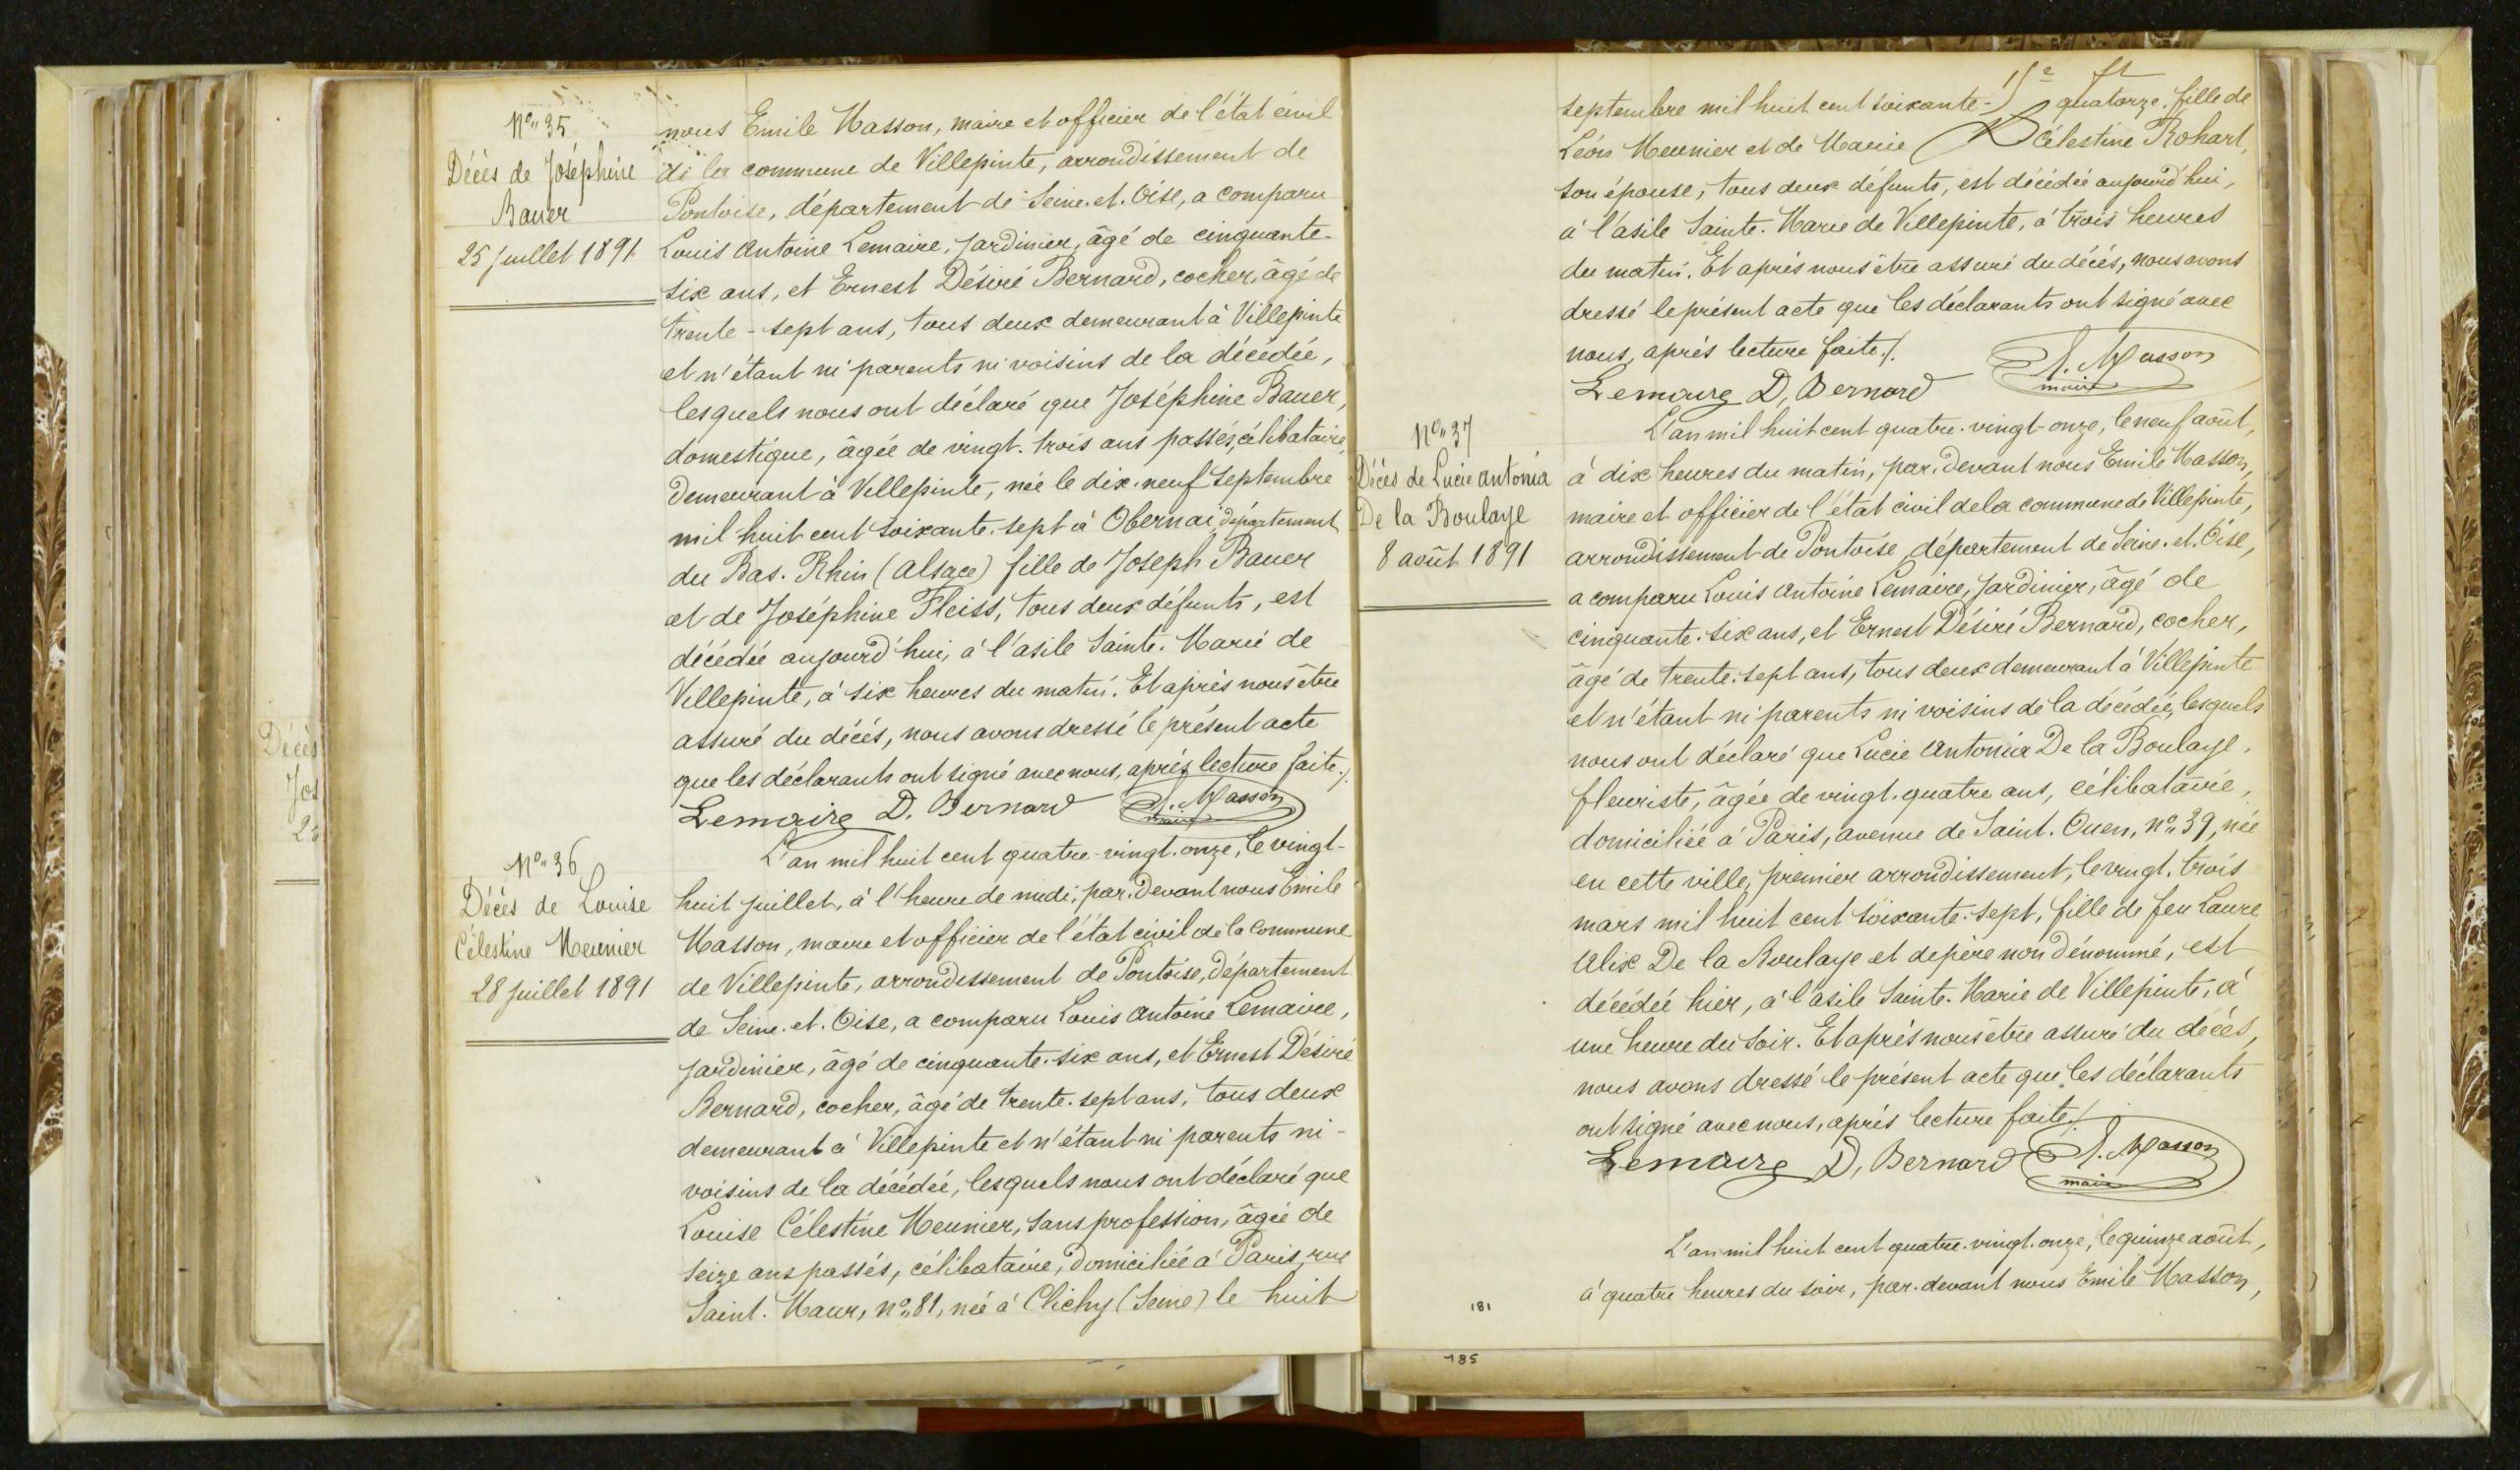 Nº 35
Décès de Joséphine
Bauer
25 juillet 1891
nous Emile Masson, maire et officier de l'état civil
de la commune de Villepinte, arrondissement de
Pontoise, département de Seine-et-Oise, a comparu
Louis Antoine Lemaire, jardinier, âgé de cinquante-
six ans, et Ernest Désiré Bernard, cocher, âgé de
trente-sept ans, tous deux demeurant à Villepinte
et n'étant ni parents ni voisins de la décédée,
lesquels nous ont déclaré que Joséphine Bauer,
domestique, âgée de vingt-trois ans passés, célibataire,
demeurant à Villepinte, née le dix-neuf septembre
mil huit cent soixante-sept à Obernai, département
du Bas-Rhin (Alsace) fille de Joseph Bauer
et de Joséphine Fleiss, tous deux défunts, est
décédée aujourd'hui, à l'asile Sainte-Marie de
Villepinte, à six heures du matin. Et après nous être
assuré du décès, nous avons dressé le présent acte
que les déclarants ont signé avec nous, après lecture faite./.
Lemaire D. Bernard E. Masson
maire
Nº 36
Décès de Louise
Célestine Meunier
28 juillet 1891
L'an mil huit cent quatre-vingt-onze, le vingt-
huit juillet, à l'heure de midi, par-devant nous Emile
Masson, maire et officier de l'état civil de la commune
de Villepinte, arrondissement de Pontoise, département
de Seine-et-Oise, a comparu Louis Antoine Lemaire,
jardinier, âgé de cinquante-six ans, et Ernest Désiré
Bernard, cocher, âgé de trente-sept ans, tous deux
demeurant à Villepinte et n'étant ni parents ni-
voisins de la décédée, lesquels nous ont déclaré que
Louise Célestine Meunier, sans profession, âgée de
seize ans passés, célibataire, domiciliée à Paris, rue
Saint-Maur, nº 81, née à Clichy (Seine) le huit
septembre mil huit cent soixante- quatorze, fille de
Léon Meunier et de Marie Célestine Rohart,
son épouse, tous deux défunts, est décédée aujourd'hui,
à l'asile Sainte-Marie de Villepinte, à trois heures
du matin. Et après nous être assuré du décès, nous avons
dressé le présent acte que les déclarants ont signé avec
nous, après lecture faite./.
Lemaire D. Bernard E. Masson
maire
Nº 37
Décès de Lucie Antonia
De la Boulaye
8 août 1891
L'an mil huit cent quatre-vingt-onze, le neuf août,
à dix heures du matin, par-devant nous Emile Masson,
maire et officier de l'état civil de la commune de Villepinte,
arrondissement de Pontoise, département de Seine-et-Oise,
a comparu Louis Antoine Lemaire, jardinier, âgé de
cinquante-six ans, et Ernest Désiré Bernard, cocher,
âgé de trente-sept ans, tous deux demeurant à Villepinte
et n'étant ni parents ni voisins de la décédée, lesquels
nous ont déclaré que Lucie Antonia De la Boulaye,
fleuriste, âgée de vingt-quatre ans, célibataire,
domiciliée à Paris, avenue de Saint-Ouen, nº 39, née
en cette ville, premier arrondissement, le vingt-trois
mars mil huit cent soixante-sept, fille de feu Laure
Alix De la Boulaye et de père non dénommé, est
décédée hier, à l'asile Sainte-Marie de Villepinte, à
une heure du soir. Et après nous être assuré du décès,
nous avons dressé le présent acte que les déclarants
ont signé avec nous, après lecture faite./.
Lemaire D. Bernard E. Masson
maire
L'an mil huit cent quatre-vingt-onze, le quinze août,
à quatre heures du soir, par-devant nous Emile Masson,
181
185
Décès
Jos
25